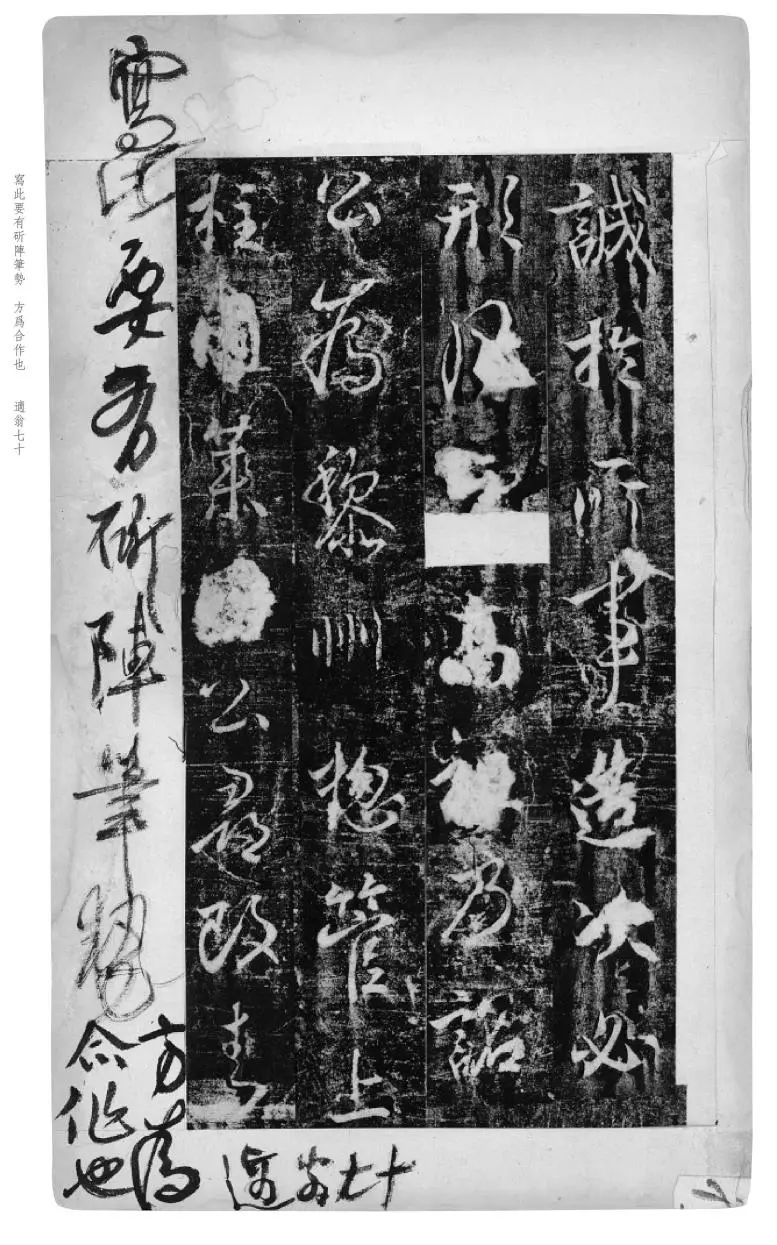 誠於所事造次必
形高詔
公為黎州總管上
柱公尋改
寫此要有斫陣筆勢
方為
合作也
適翁七十
寫此要有斫陣筆勢　方爲合作也　適翁七十